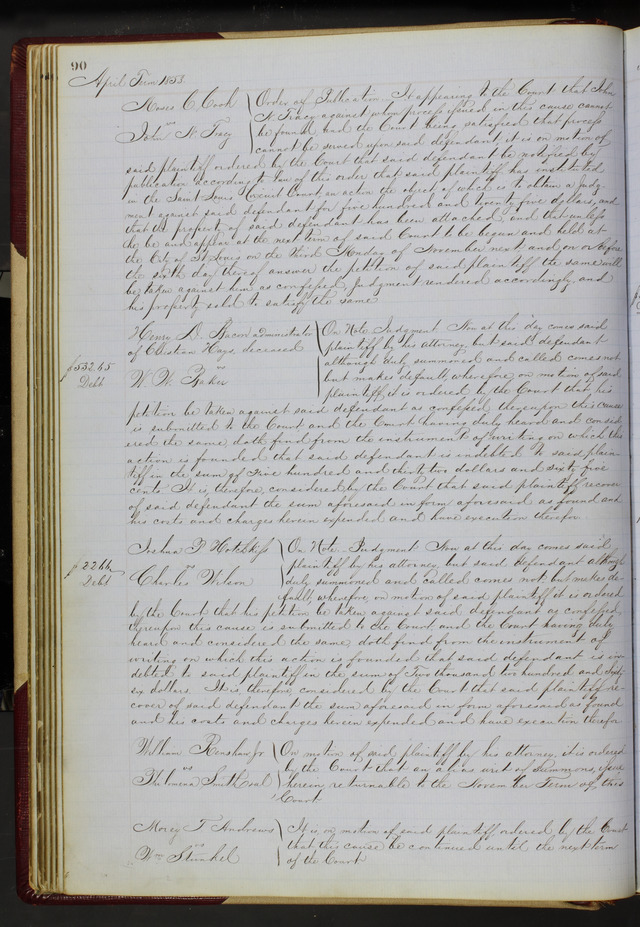 90
April Term 1853.
Moses C. Cook
vs
John N. Tracy
Order of Publication. It appearing to the Court that John
N. Tracy against whom process issued in this cause cannot
be found, and the Court being satisfied that process
cannot be served upon said defendant, it is on motion of
said plaintiff ordered by the Court that said defendant be notified by
publication according to law of this order that said plaintiff has instituted
in the Saint Louis Circuit Court, an action the object of which is to obtain a judg
ment against said defendant for five hundred and twenty five dollars, and
that the property of said defendant has been attached, and that unless
he be and appear at the next term of said Court to be begun and held at
the City of St Louis on the third Monday of November next, and on or before
the sixth day thereof answer the petition of said plaintiff the same will
be taken against him as confessed, judgment rendered accordingly, and
his property sold to satisfy the same
$532.65
Debt
Henry D. Bacon administrator
of Christian Hays, deceased
vs
W. W. Baker
On Note. Judgment Now at this day comes said
plaintiff by his attorney, but said defendant
although duly summoned and called comes not
but makes default, wherefore, on motion of said
plaintiff, it is ordered by the Court that his
petition be taken against said defendant as confessed, thereupon this cause
is submitted to the Court and the Court having duly heard and consid
ered the same, doth find from the instrument of writing on which this
action is founded that said defendant is indebted to said plain-
tiff in the sum of Five hundred and thirty two dollars and sixty five
cents. It is, therefore, considered by the Court that said plaintiff recover
of said defendant the sum aforesaid in form aforesaid as found and
his costs and charges herein expended and have execution therefor.
$2266
Debt
Joshua P Hotchkiss
vs
Charles Wilson
On Note. Judgment Now at this day comes said
plaintiff by his attorney but said defendant although
duly summoned and called comes not, but makes de-
fault, wherefore, on motion of said plaintiff it is ordered
by the Court that his petition be taken against said defendant as confessed,
thereupon this cause is submitted to the Court, and the Court having duly
heard and considered the same, doth find from the instrument of
writing on which this action is founded that said defendant is in-
debted to said plaintiff in the sum of Two thousand two hundred and Sixty
six dollars. It is, therefore, considered by the Court that said plaintiff re-
cover of said defendant the sum aforesaid in form aforesaid as found
and his costs and charges herein expended and have execution therefor
William Renshaw Jr
vs
Smith et al
On motion of said plaintiff by his attorney, it is ordered
by the Court that an alias writ of Summons, issue
herein returnable to the November Term of this
Court
T Andrews
vs
Wm
It is on motion of said plaintiff ordered by the Court
that this cause be continued until the next term
of the Court